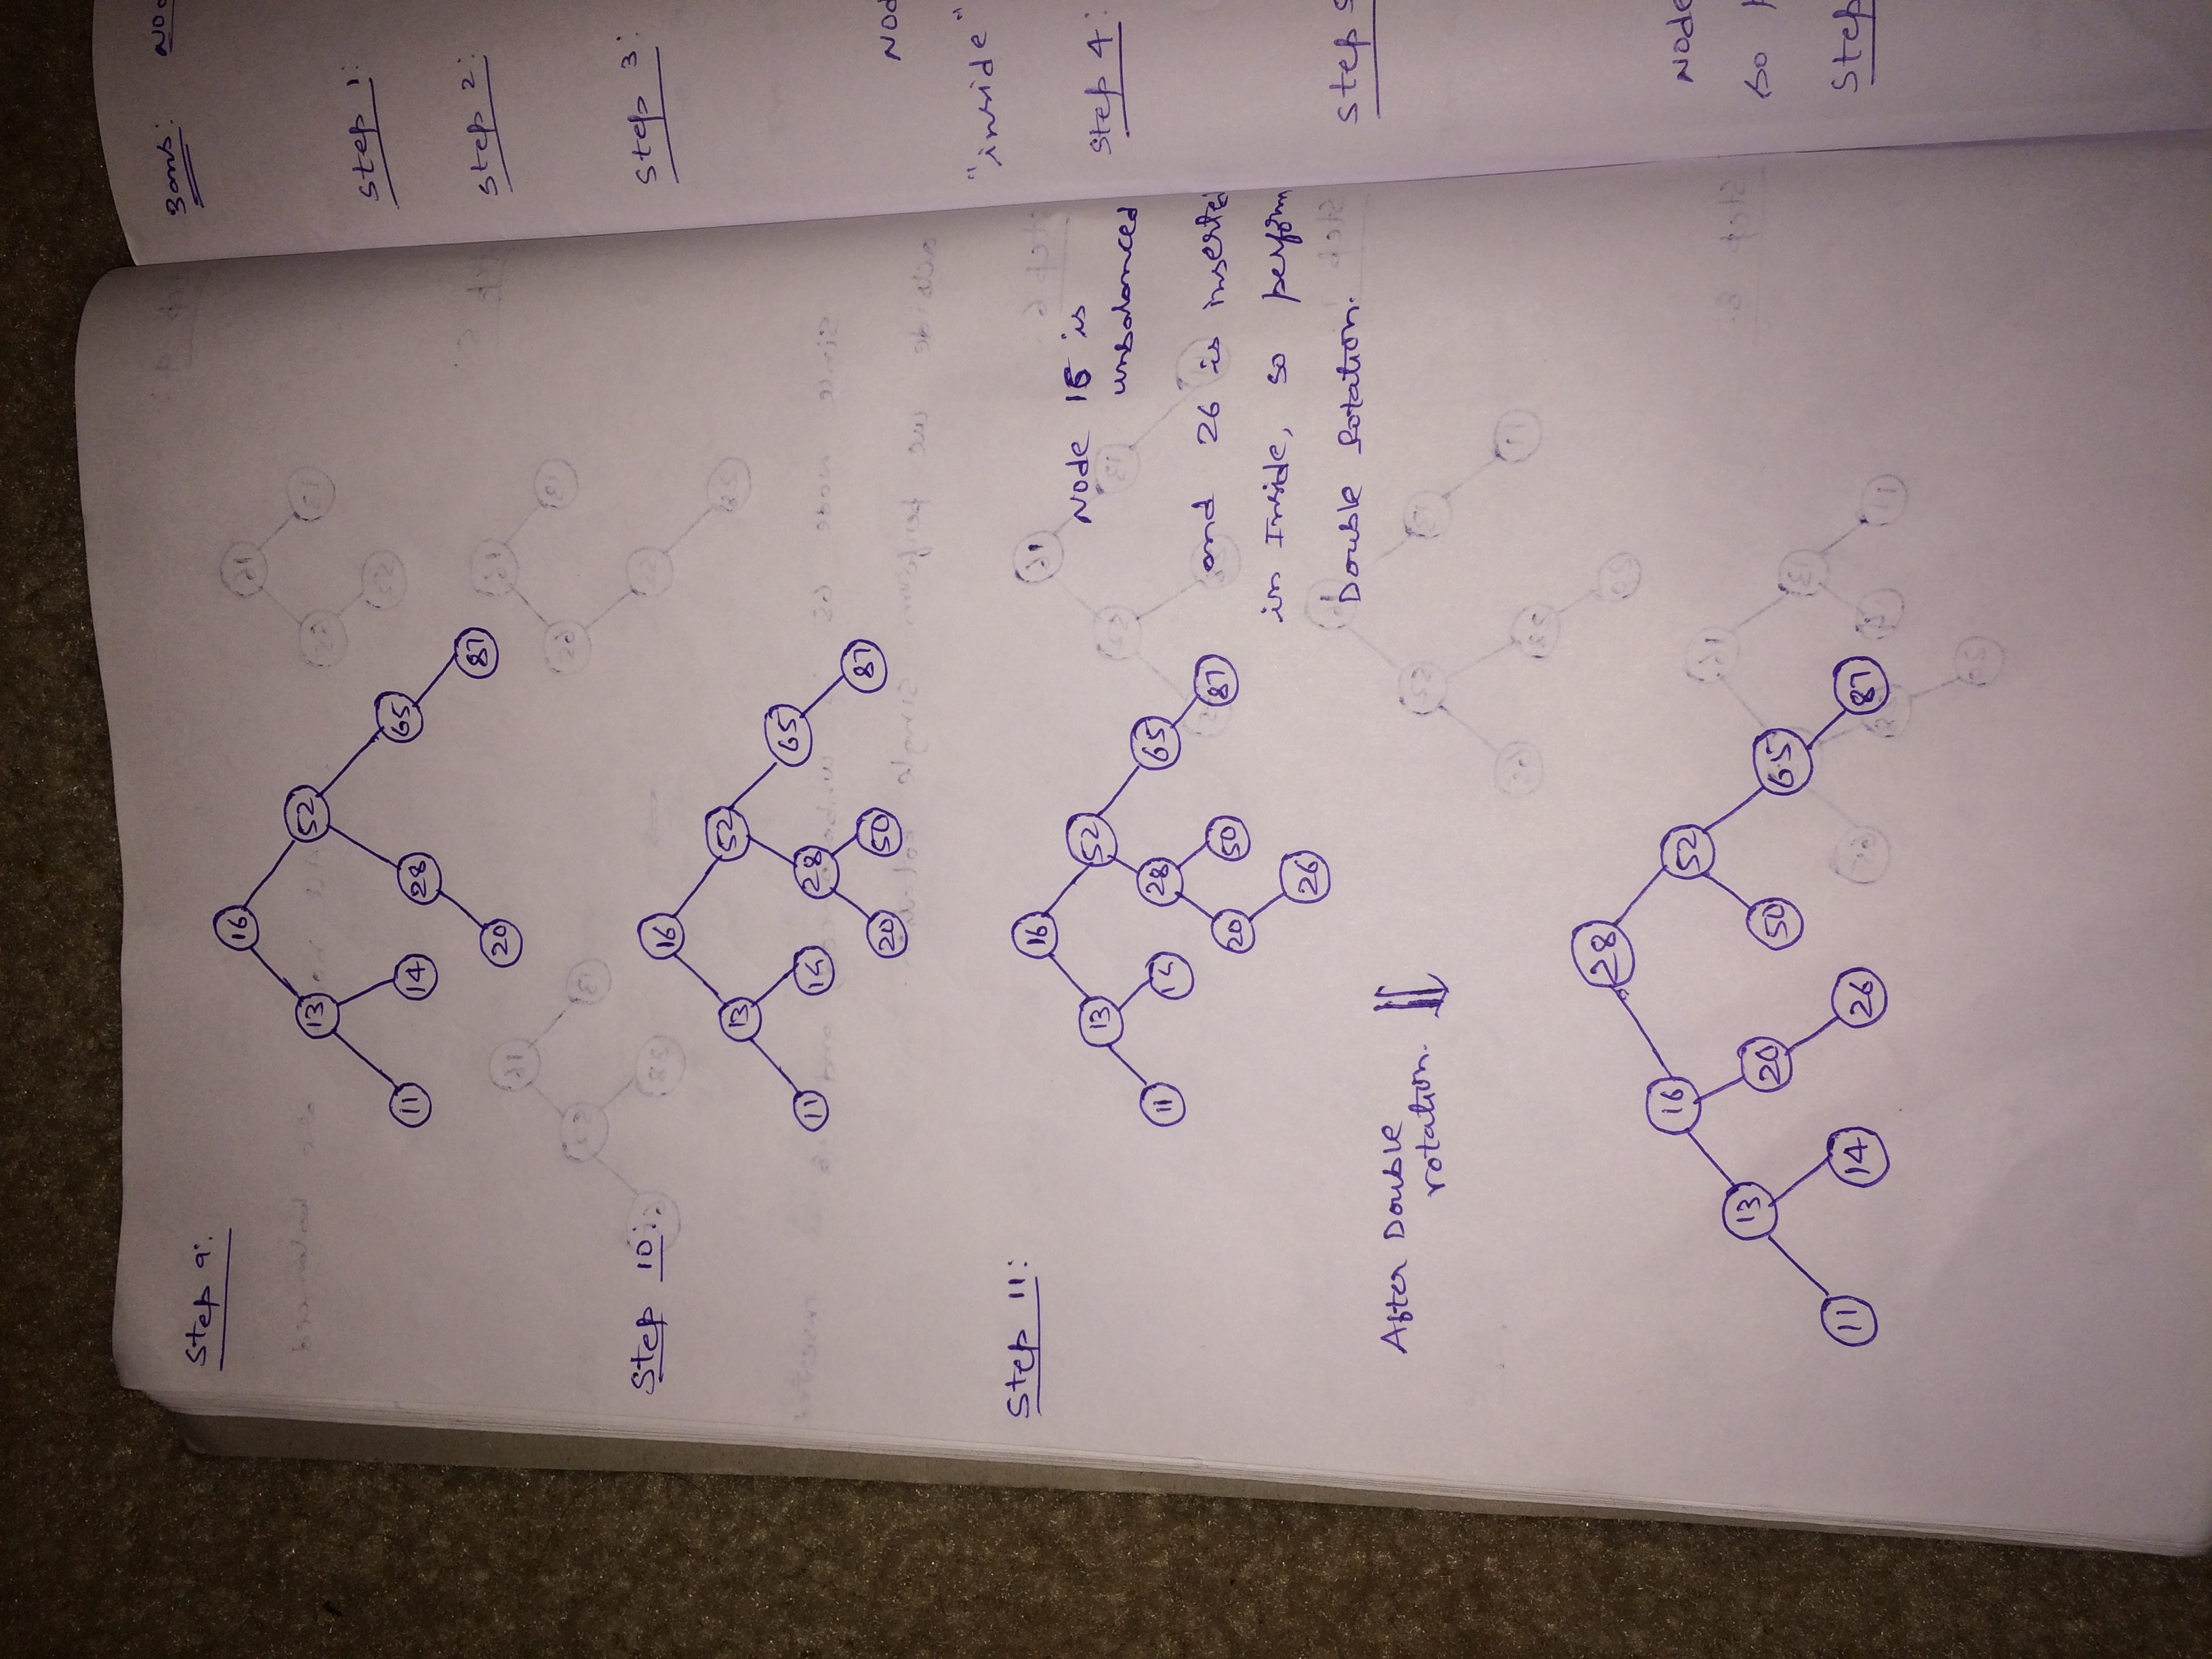 Step 9:
16
13 52
11 14 28 65
20 87
Step 10:
16
13 52
11 14 28 65
20 50 87
Step 11:
16
13 52
11 14 28 65
20 50 87
26
Node 16 is
unbalanced
and 26 is inserted
in Inside, so perform
Double Rotation.
After Double
rotation.
28
16 52
13 20 50 65
11 14 26 87
Step 1:
Step 2:
Step 3:
"inside"
Step 4:
Step 5
Node
so
Step